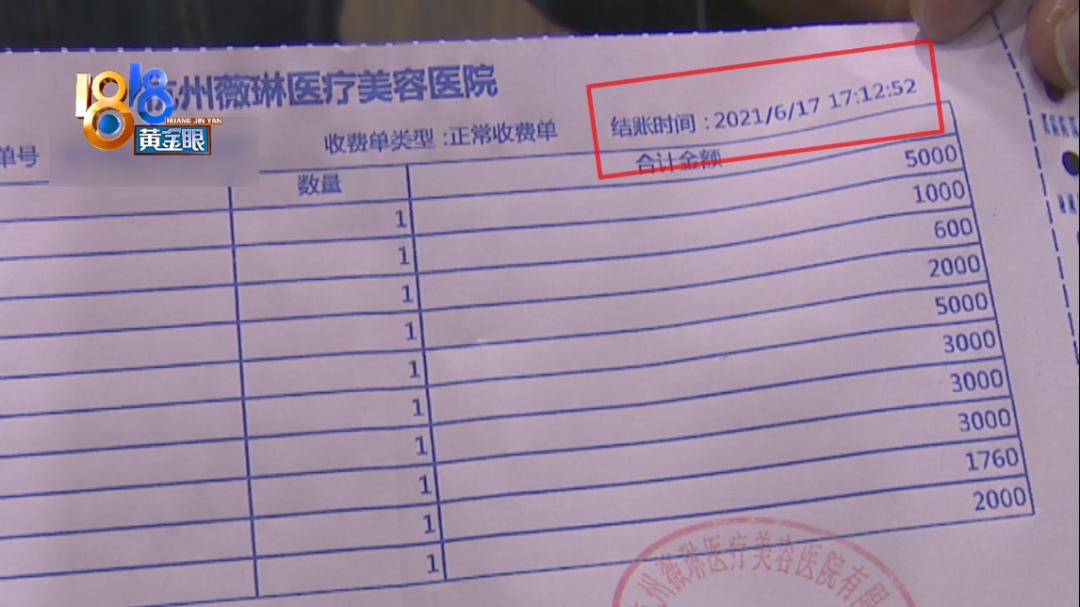 杭州薇琳医疗美容医院
1818
HUANG JIN YAN
黄金眼
单号
收费单类型:正常收费单
结账时间:2021/6/17 17:12:52
数量
合计金额
1 5000
1 1000
1 600
1 2000
1 5000
1 3000
1 3000
1 3000
1 1760
1 2000
杭州薇琳医疗美容医院有限